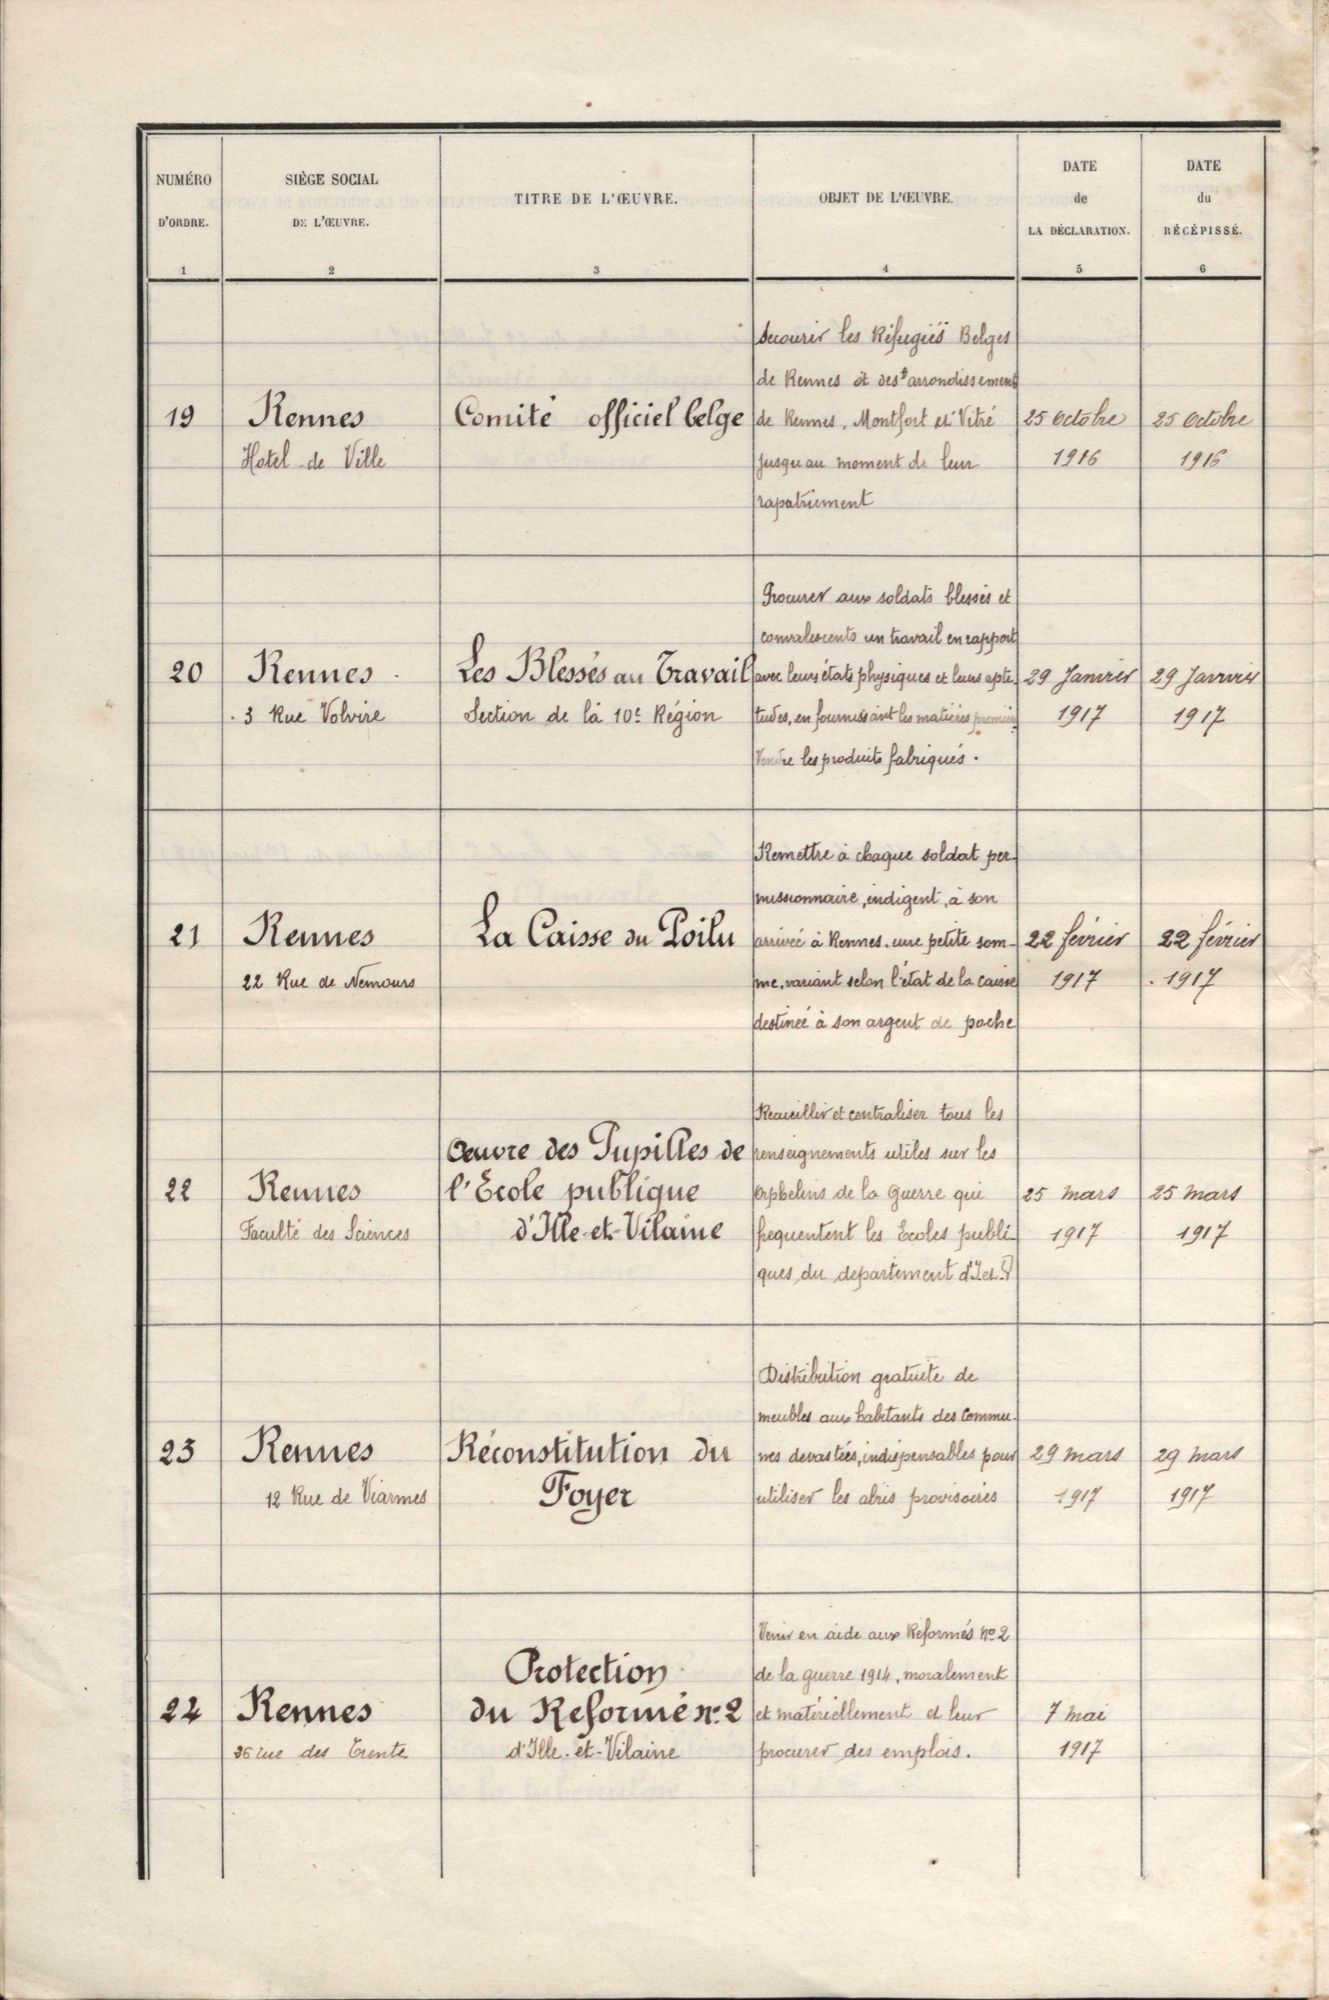 NUMÉRO
D'ORDRE.
1
SIÈGE SOCIAL
DE L'ŒUVRE.
2
TITRE DE L'ŒUVRE.
3
OBJET DE L'ŒUVRE.
4
DATE
de
LA DÉCLARATION.
5
DATE
du
RÉCÉPISSÉ.
6
19
Rennes
Hotel de Ville
Comité officiel belge
Secourir les Réfugiés Belges
de Rennes et des arrondissements
de Rennes, Montfort et Vitré
jusqu au moment de leur
rapatriement
25 Octobre
1916
25 Octobre
1916
20
Rennes
3 Rue Volvire
Les Blessés au Travail
Section de la 10e Région
Procurer aux soldats blessés et
convalescents un travail en rapport
avec leurs états physiques et leurs apti-
tudes, en fournissant les matières premièr.
Vendre les produits fabriqués.
29 Janvier
1917
29 Janvier
1917
21
Rennes
22 Rue de Nemours
La Caisse du Poilu
Remettre à chaque soldat per-
missionnaire, indigent, à son
arrivée à Rennes. une petite som-
me, variant selon l'état de la caisse
destinée à son argent de poche
22 février
1917
22 février
1917
22
Rennes
Faculté des Sciences
Œuvre des Pupilles de
l'École publique
d'Ille-et-Vilaine
Recueillir et centraliser tous les
renseignements utiles sur les
orphelins de la Guerre qui
frequentent les Écoles publi-
ques du departement d'I.et.V
25 mars
1917
25 mars
1917
23
Rennes
12 Rue de Viarmes
Réconstitution du
Foyer
Distribution gratuite de
meubles aux habitants des Commu-
nes devastées, indispensables pour
utiliser les abris provisoires
29 mars
1917
29 mars
1917
24
Rennes
36 rue des Trente
Protection
du Reformé no. 2
d'Ille-et-Vilaine
Venir en aide aux Reformés no 2
de la guerre 1914, moralement
et matériellement et leur
procurer des emplois.
7 mai
1917